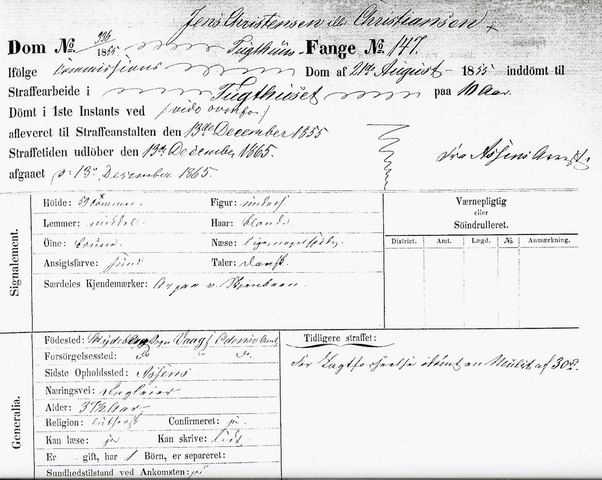 Jens Christensen eller Christiansen
Dom No. 226/1855 Tugthuus-Fange No. 147.
Ifölge Commissions Dom af 21de August 1855 inddömt til
Straffearbeide i Tugthuset paa 10 Aar.
Dömt i 1ste Instants ved (vide ovenfor)
afleveret til Straffeanstalten den 13de December 1855
Straffetiden udlöber den 13de December 1865.
Fra Assens Amt
afgaaet d: 13 December 1865.
Signalement.
Höide: Tommer Figur:
Lemmer: middel Haar: blondt
Öine: brune Næse:
Ansigtsfarve: sund Taler: dansk
Særdeles Kjendemærker: Ar paa v. Skinneben
Værnepligtig
eller
Söindrulleret.
District. Amt. Lægd. No. Anmærkning.
Generalia.
Födested: Sogn Odense Amt
Forsörgelsessted: do do
Sidste Opholdssted: Assens
Næringsvei: Daglejer
Alder: 37½ Aar
Religion: luthersk Confirmeret: ja
Kan læse: ja Kan skrive: lidt
Er gift, har 1 Börn, er separeret:
Sundhedstilstand ved Ankomsten:
Tidligere straffet:
For idömt en Mulct af 30 Rd.